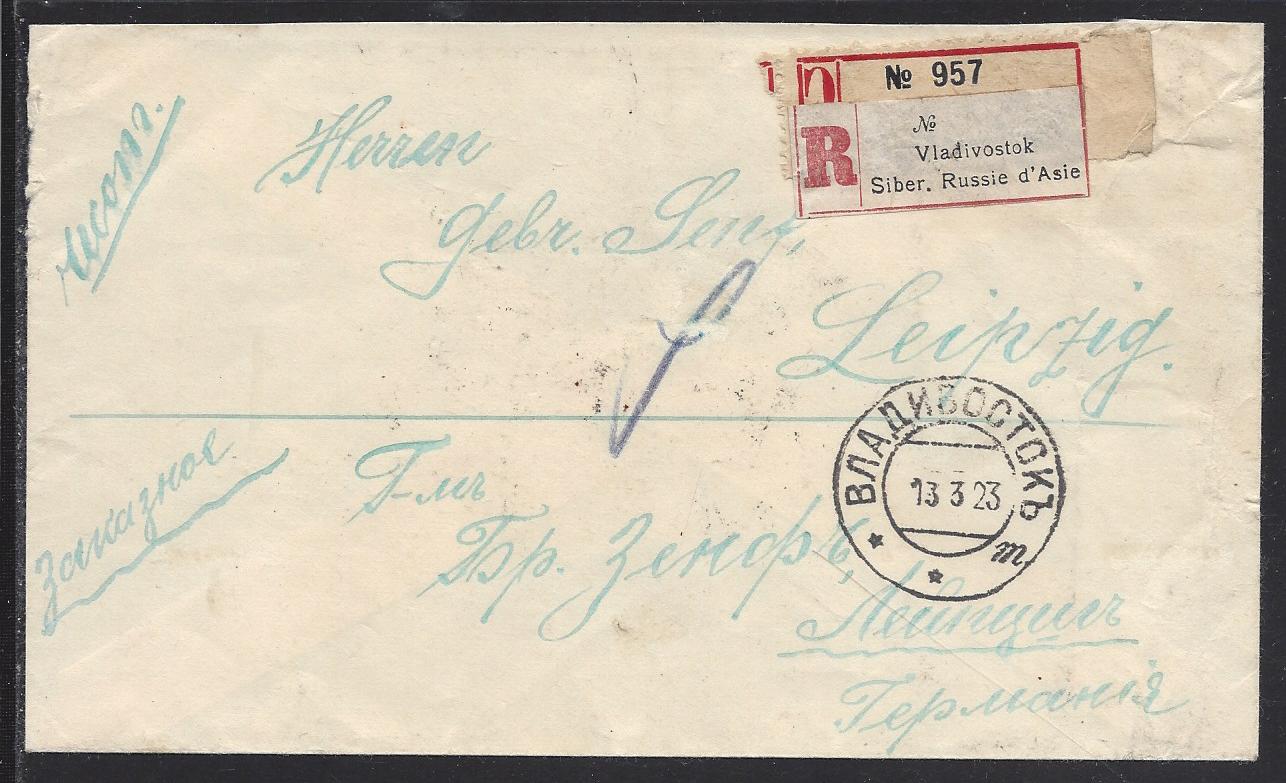 № 957
R
№
Vladivostok
Siber. Russie d'Asie
иност.
Herren
Gebr. Senf,
Leipzig.
ВЛАДИВОСТОКЪ
13 3 23
т
Заказное
Г-мъ
Бр. Зенфъ,
Лейпцигъ
Германія